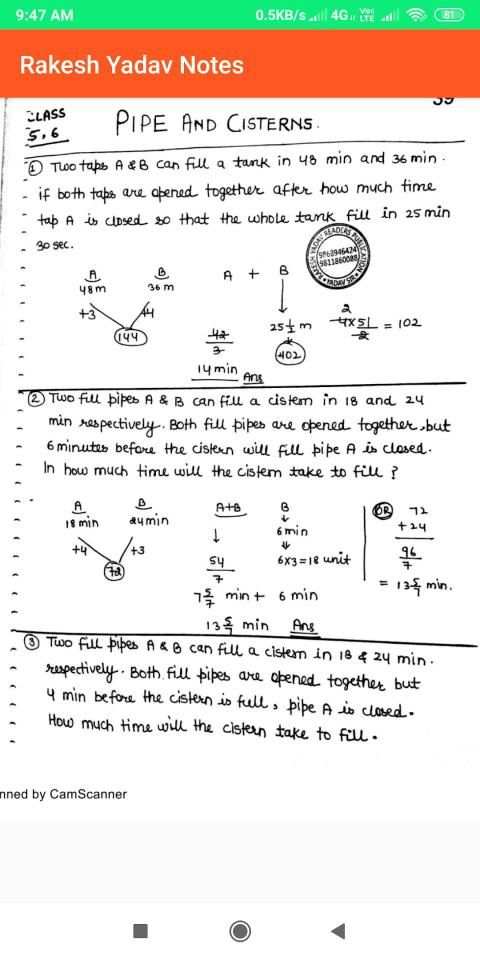 9:47 AM
0.5KB/s 4G Vo LTE 81
Rakesh Yadav Notes
39
CLASS
5,6
PIPE AND CISTERNS.
① Two taps A & B can fill a tank in 48 min and 36 min.
if both taps are opened together after how much time
tap A is closed so that the whole tank fill in 25 min
30 sec.
RAKESH YADAV READERS PUBLICATION
9868946424
9811860088
A B A + B
48m 36m
+3 +4 144
42/3
14 min Ans
25½ m
402
2
4×51/2 = 102
② Two fill pipes A & B can fill a cistern in 18 and 24
min respectively. Both fill pipes are opened together, but
6 minutes before the cistern will fill pipe A is closed.
In how much time will the cistern take to fill ?
A B A+B B OR 72
18 min 24min ↓ 6 min +24
+4 +3 72 54/7 6×3=18 unit 96/7
7 5/7 min + 6 min = 13 5/7 min.
13 5/7 min Ans
③ Two fill pipes A & B can fill a cistern in 18 & 24 min.
respectively. Both fill pipes are opened together but
4 min before the cistern is full, pipe A is closed.
How much time will the cistern take to fill.
nned by CamScanner